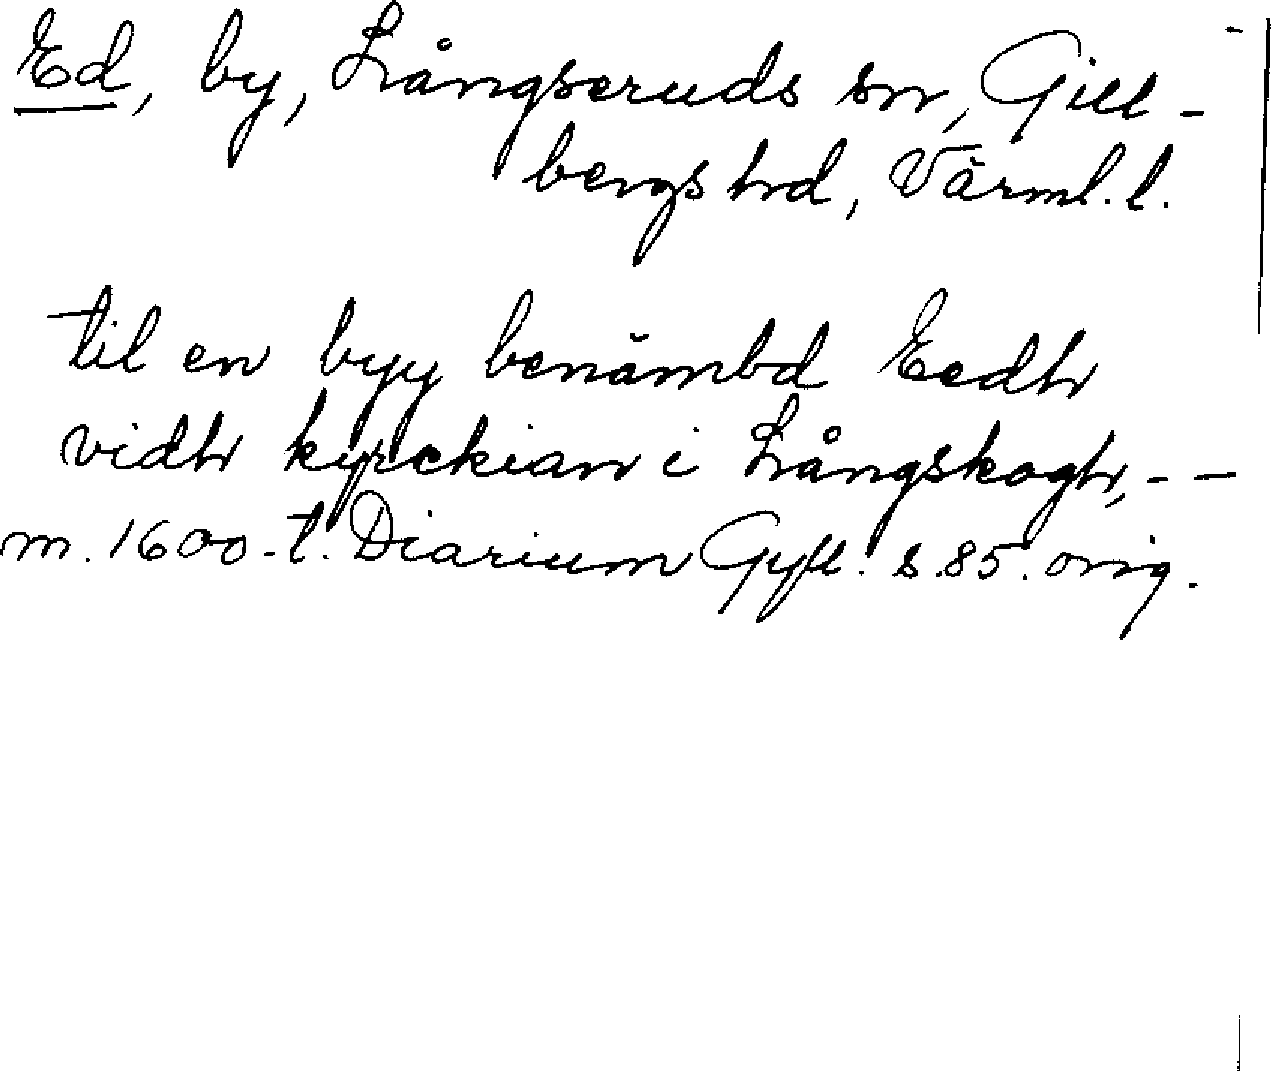 Ed, by, Långseruds sn, Gill-
bergs hd, Värml. l.
til en byy benämbd Eedh
vidh kyrckian i Långskogh, - -
m. 1600-t. Diarium Gyll. s. 85. orig.